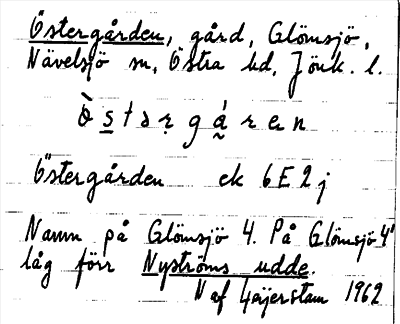 Östergården, gård, Glömsjö,
Nävelsjö sn, Östra hd, Jönk. l.
Östergården ek 6E2j
Namn på Glömsjö 4. På Glömsjö 4¹
låg förr Nyströms udde.
N af Geijerstam 1962